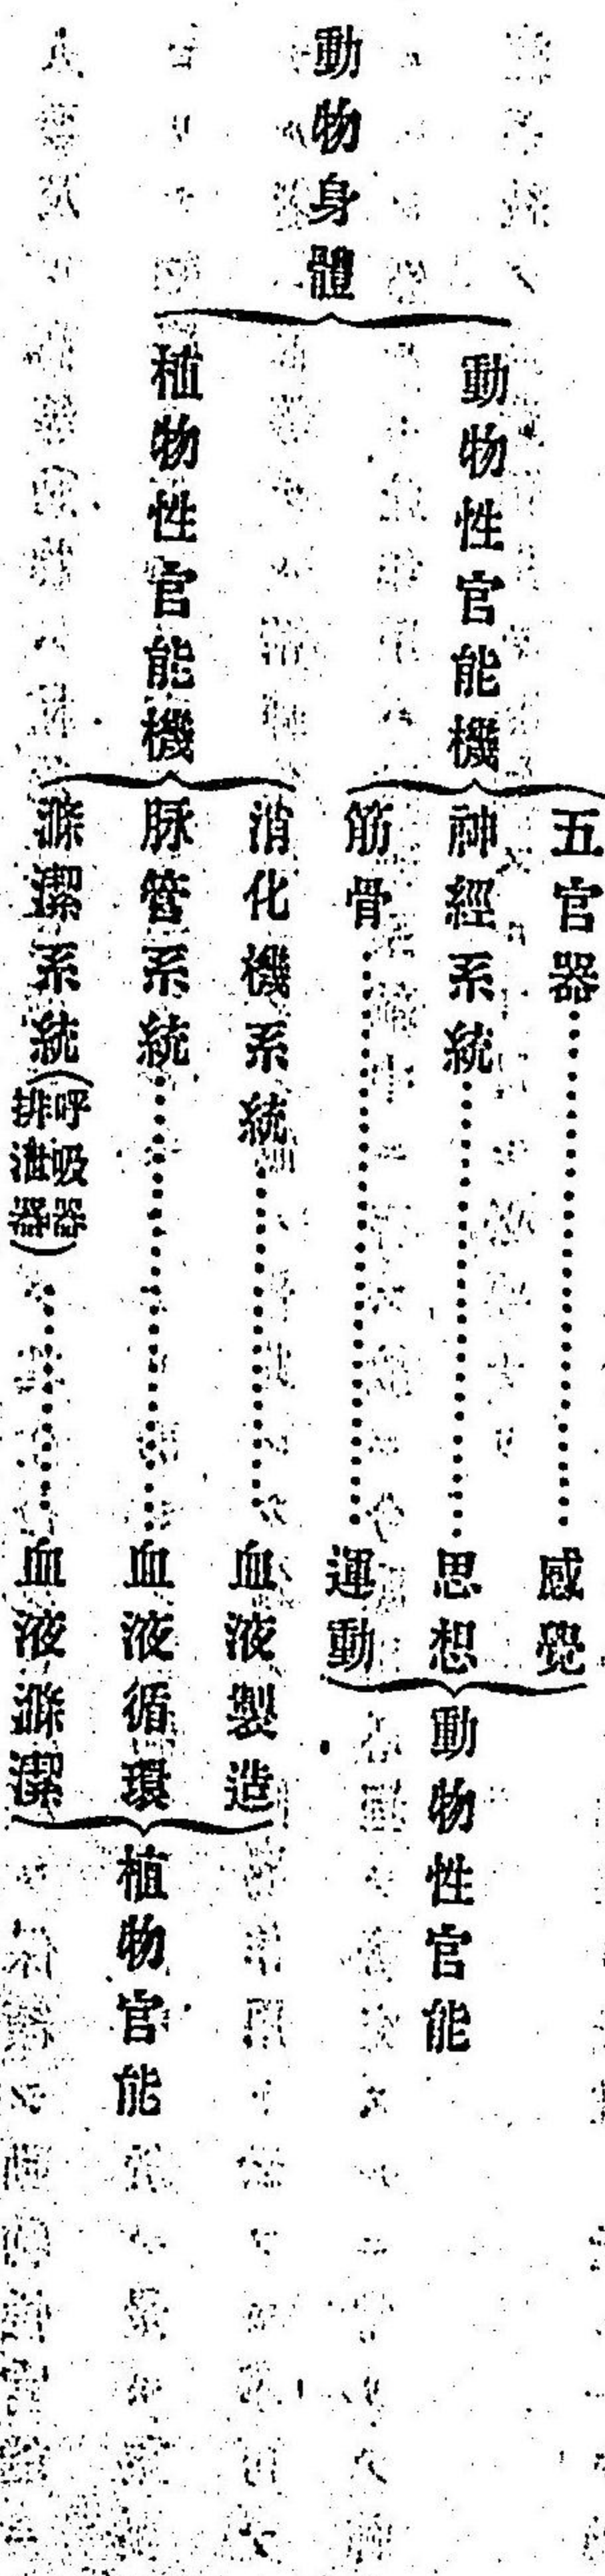 動物身體
動物性官能機
五官器………感覺
神經系統………思想
筋骨………運動
動物性官能
植物性官能機
消化機系統………血液製造
脉管系統………血液循環
滌潔系統(呼吸器排泄器)………血液滌潔
植物官能